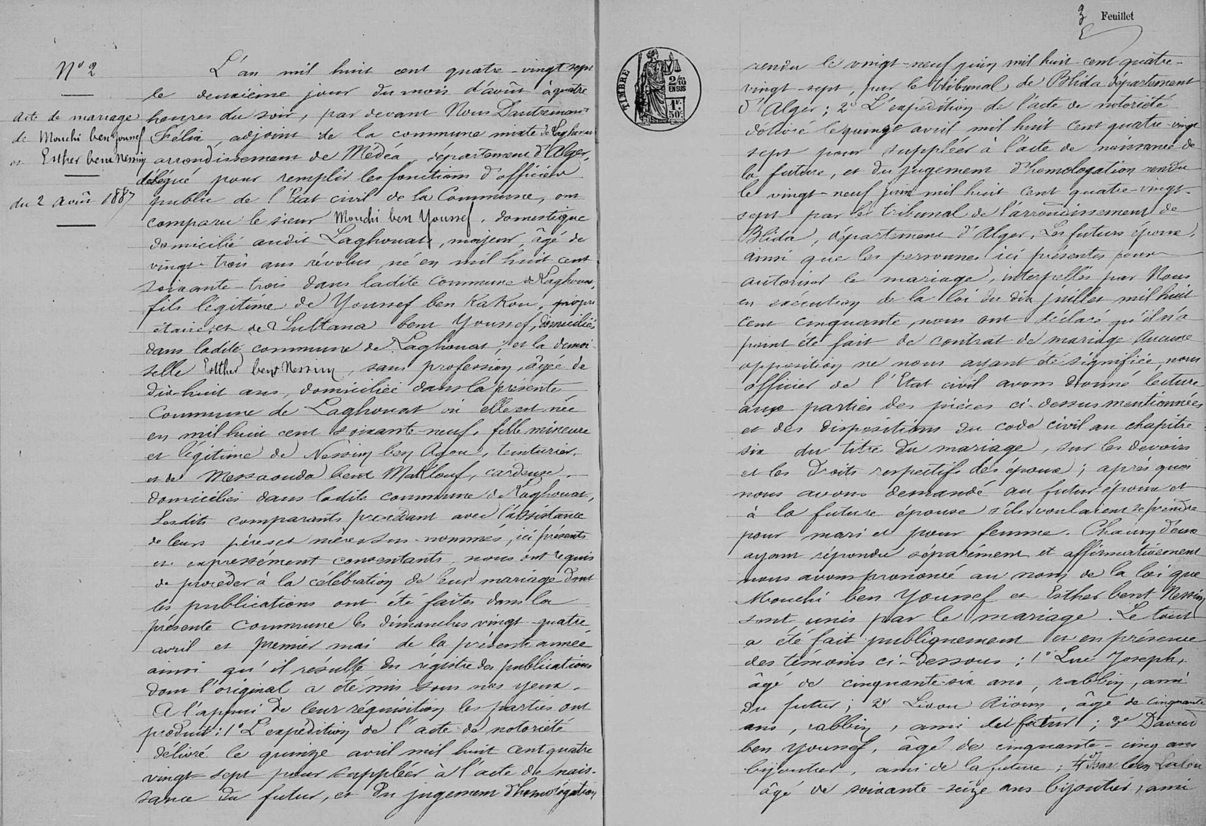 N° 2
acte de mariage
de Mouchi ben Youssef
et Esther bent Nessim
du 2 août 1887
L'an mil huit cent quatre-vingt sept
le deuxième jour du mois d'août à quatre
heures du soir, par devant Nous Dautremont
Félix, adjoint de la commune mixte de Laghouat
arrondissement de Médéa, département d'Alger,
délégué pour remplir les fonctions d'officier
public de l'Etat civil de la Commune, ont
comparu le sieur Mouchi ben Youssef, domestique
domicilié audit Laghouat, majeur, âgé de
vingt-trois ans révolus, né en mil huit cent
soixante-trois dans ladite commune de Laghouat,
fils légitime de Youssef ben Kakou, propri
étaire, et de Sultana bent Youssef, domiciliés
dans ladite commune de Laghouat; et la demoi-
selle Esther bent Nessim, sans profession, âgée de
dix-huit ans, domiciliée dans la présente
Commune de Laghouat où elle est née
en mil huit cent soixante neuf, fille mineure
et légitime de Nessim ben Agou, teinturier
et de Messaouda bent Makhlouf, cardeuse
domiciliés dans ladite commune de Laghouat,
Lesdits comparants procédant avec l'assistance
de leurs pères et mères sus-nommés, ici présents
et expressément consentants, nous ont requis
de procéder à la célébration de leur mariage dont
les publications ont été faites dans la
présente commune les dimanches vingt-quatre
avril et premier mai de la présente année
ainsi qu'il résulte du registre des publications
dont l'original a été mis sous nos yeux.
A l'appui de leur réquisition les parties ont
produit: 1° L'expédition de l'acte de notoriété
délivré le quinze avril mil huit cent quatre
vingt-sept pour suppléer à l'acte de nais-
sance du futur, et du jugement d'homologation
3 Feuillet
TIMBRE
2/10 EN SUS
1F 50C
rendu le vingt-neuf juin mil huit cent quatre-
vingt-sept, par le Tribunal de Blida département
d'Alger; 2° L'expédition de l'acte de notoriété
délivré le quinze avril mil huit cent quatre-vingt
sept pour suppléer à l'acte de naissance de
la future, et du jugement d'homologation rendu
le vingt-neuf juin mil huit cent quatre-vingt-
sept par le tribunal de l'arrondissement de
Blida, département d'Alger, Les futurs époux,
ainsi que les personnes ici présentes pour
autoriser le mariage, interpellés par Nous
en exécution de la loi du dix juillet mil huit
cent cinquante, nous ont déclaré qu'il n'a
point été fait de contrat de mariage Aucune
opposition ne nous ayant été signifiée, nous
officier de l'Etat civil avons donné lecture
aux parties des pièces ci-dessus mentionnées
et des dispositions du code civil au chapitre
six du titre du mariage, sur les devoirs
et les droits respectifs des époux; après quoi
nous avons demandé au futur époux et
à la future épouse s'ils veulent se prendre
pour mari et pour femme. Chacun d'eux
ayant répondu séparément et affirmativement
nous avons prononcé au nom de la loi que
Mouchi ben Youssef et Esther bent Nessim
sont unis par le mariage. Le tout
a été fait publiquement et en présence
des témoins ci-dessous: 1° Luc Joseph,
âgé de cinquante-six ans, rabbin, ami
du futur; 2° âgé de cinquante
ans, rabbin, ami du futur; 3° Daoud
ben Youssef, âgé de cinquante-cinq ans
bijoutier, ami de la future; 4° Isaac ben
âgé de soixante-seize ans bijoutier, ami